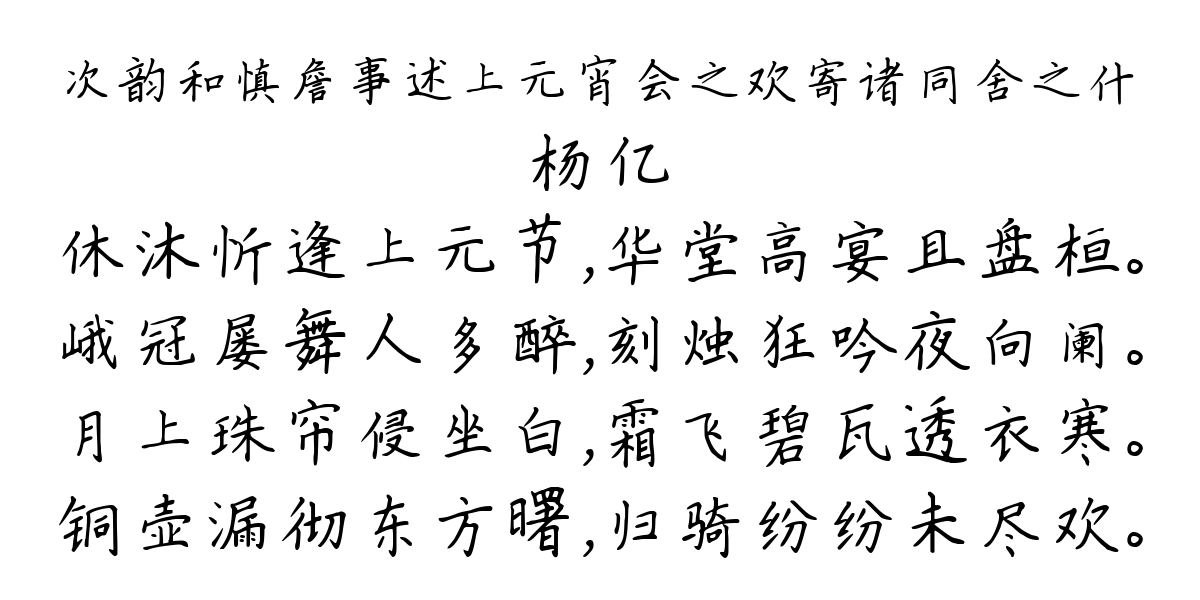 次韵和慎詹事述上元宵会之欢寄诸同舍之什
杨亿
休沐忻逢上元节,华堂高宴且盘桓。
峨冠屡舞人多醉,刻烛狂吟夜向阑。
月上珠帘侵坐白,霜飞碧瓦透衣寒。
铜壶漏彻东方曙,归骑纷纷未尽欢。